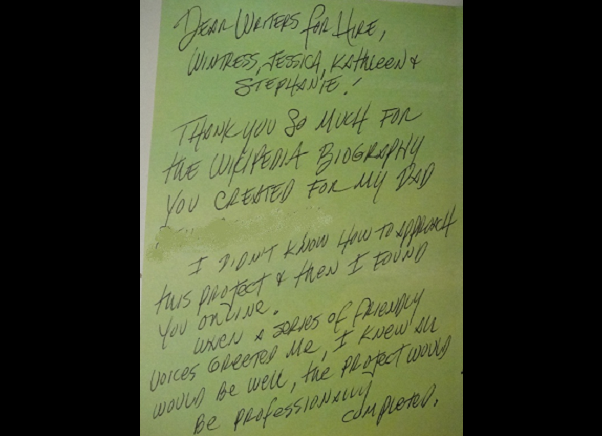 DEAR WRITERS FOR HIRE,
WINTRESS, JESSICA, KATHLEEN &
STEPHANIE!
THANK YOU SO MUCH FOR
the WIKIPEDIA BIOGRAPHY
YOU CREATED FOR MY DAD
I DIDN'T KNOW HOW TO APPROACH
this PROJECT & then I FOUND
YOU ONLINE.
WHEN A SERIES of FRIENDLY
VOICES GREETED ME, I KNEW ALL
WOULD BE WELL, the PROJECT WOULD
BE PROFESSIONALLY
COMPLETED.